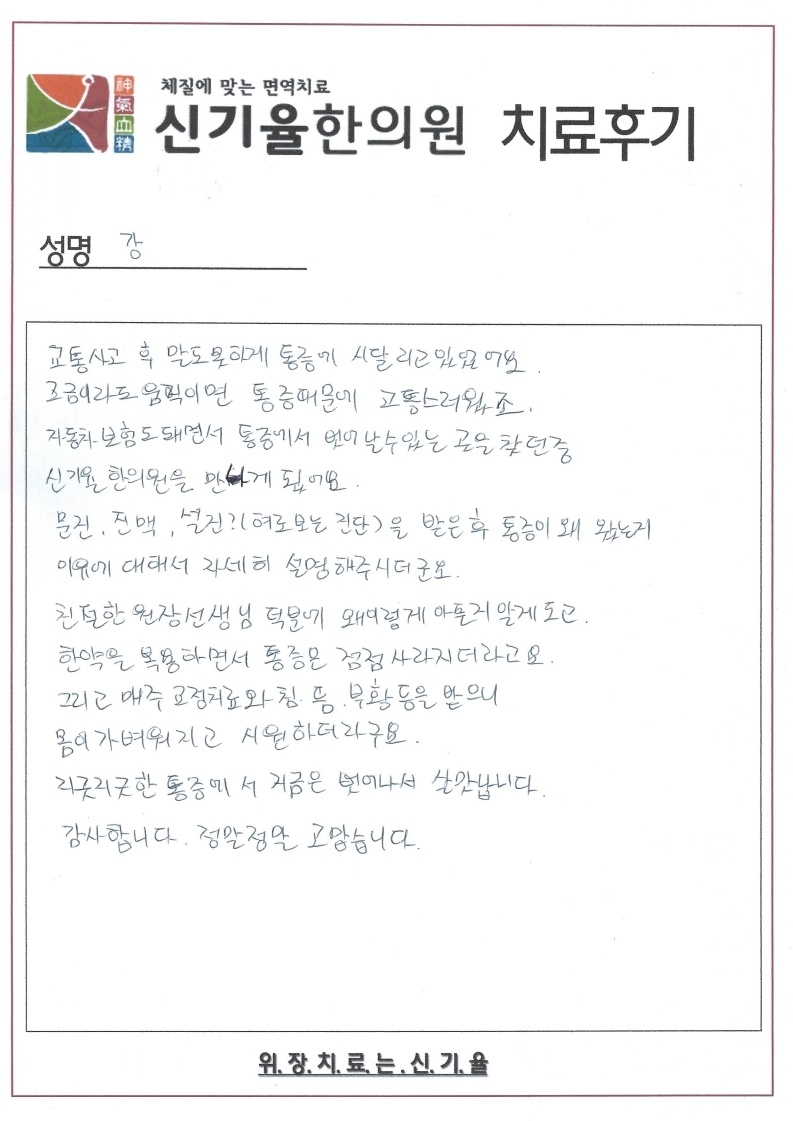 神氣血精
체질에 맞는 면역치료
신기율한의원 치료후기
성명 강
교통사고 후 말도못하게 통증에 시달리고있었어요.
조금이라도 움직이면 통증때문에 고통스러웠죠.
자동차보험도 돼면서 통증에서 벗어날수있는 곳을 찾던중
신기율 한의원을 만나게 됬어요.
문진, 진맥, 설진?(혀로보는 진단)을 받은후 통증이 왜 왔는지
이유에 대해서 자세히 설명해주시더군요.
친절한 원장선생님 덕분에 왜이렇게 아픈지 알게되고.
한약을 복용하면서 통증은 점점 사라지더라고요.
그리고 매주 교정치료와 침. 뜸. 부황 등을 받으니
몸이 가벼워지고 시원하더라구요.
지긋지긋한 통증에서 지금은 벗어나서 살맛납니다.
감사합니다. 정말정말 고맙습니다.
위.장.치.료.는.신.기.율